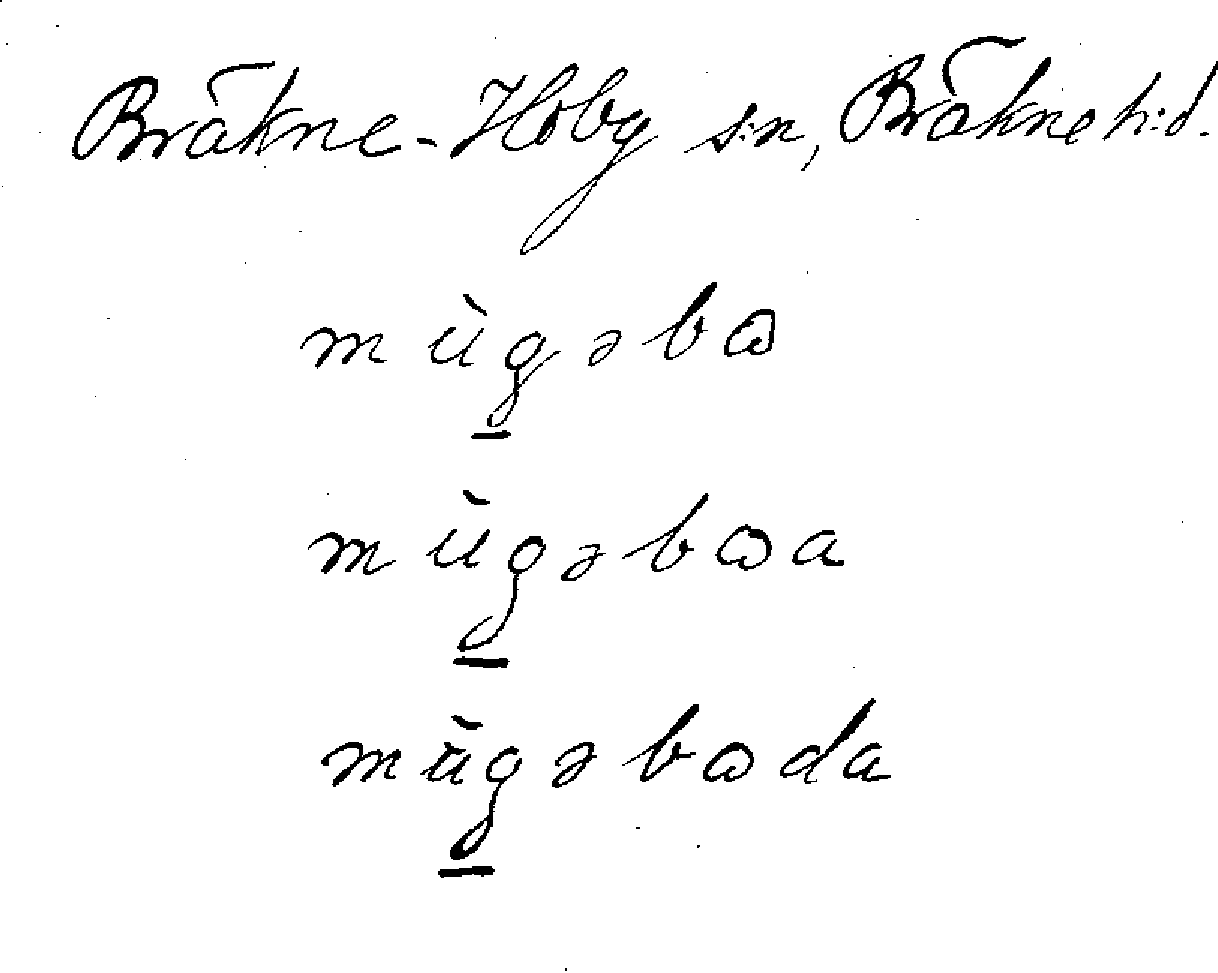 Bräkne-Hoby s:n, Bräkne h:d.
mùg̱əbɷ
mùg̱əbɷa
mùg̱əbɷda